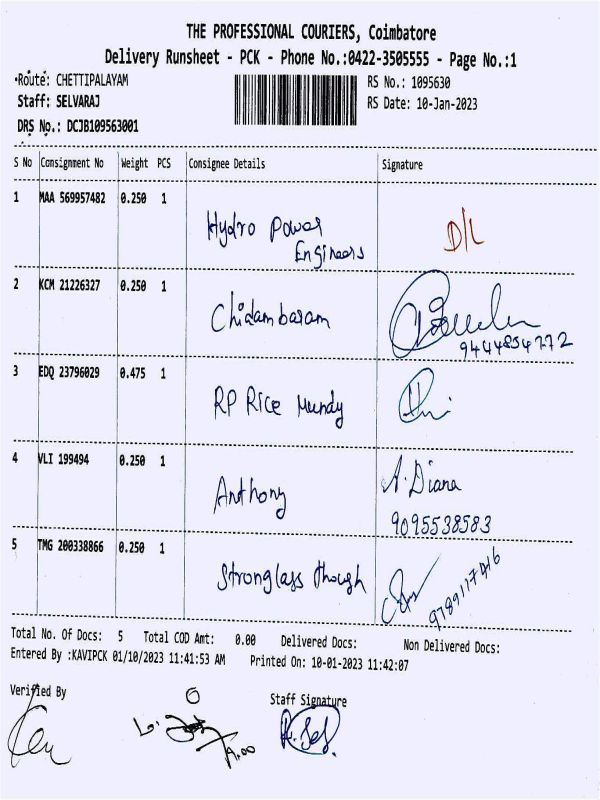 THE PROFESSIONAL COURIERS, Coimbatore
Delivery Runsheet - PCK - Phone No.:0422-3505555 - Page No.:1
Route: CHETTIPALAYAM
RS No.: 1095630
Staff: SELVARAJ
RS Date: 10-Jan-2023
DRS No.: DCJB109563001
S No Consignment No Weight PCS Consignee Details Signature
1 MAA 569957482 0.250 1
Hydro Power
Engineers
D/L
2 KCM 21226327 0.250 1
Chidambaram
9444854772
3 EDQ 23796029 0.475 1
RP Rice Mundy
4 VLI 199494 0.250 1
Anthony
A. Diana
9095538583
5 TMG 200338866 0.250 1
Stronglass though
Total No. Of Docs: 5 Total COD Amt: 0.00 Delivered Docs: Non Delivered Docs:
Entered By :KAVIPCK 01/10/2023 11:41:53 AM Printed On: 10-01-2023 11:42:07
Verified By
Staff Signature